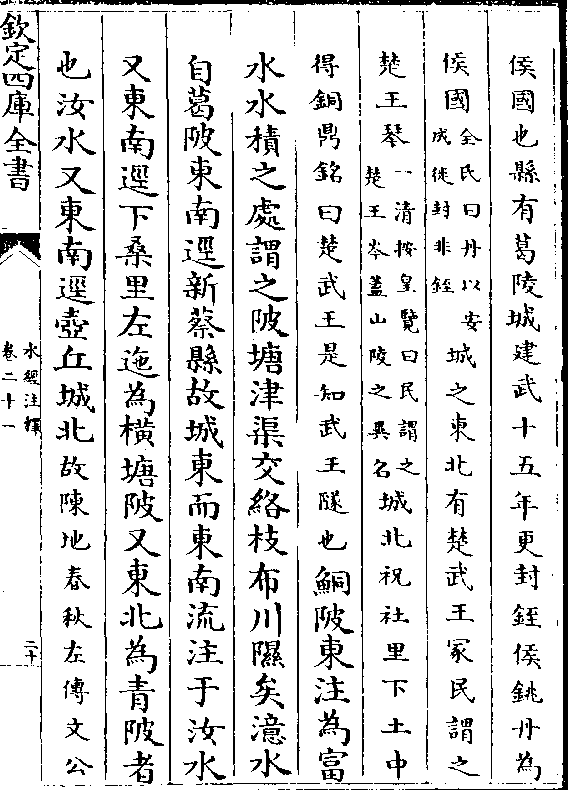 侯國也縣有葛陵城建武十五年更封銍侯銚丹為
侯國全氏曰丹以安成徙封非銍城之東北有楚武王冢民謂之
楚王琴一清按皇覽曰民謂之楚王岑蓋山陵之異名城北祝社里下土中
得銅鼎銘曰楚武王是知武王隧也鮦陂東注為富
水水積之處謂之陂塘津渠交絡枝布川隰矣澺水
自葛陂東南逕新蔡縣故城東而東南流注于汝水
又東南逕下桑里左迤為橫塘陂又東北為青陂者
也汝水又東南逕壺丘城北故陳地春秋左傳文公
欽定四庫全書
水經注釋
卷二十一
二十